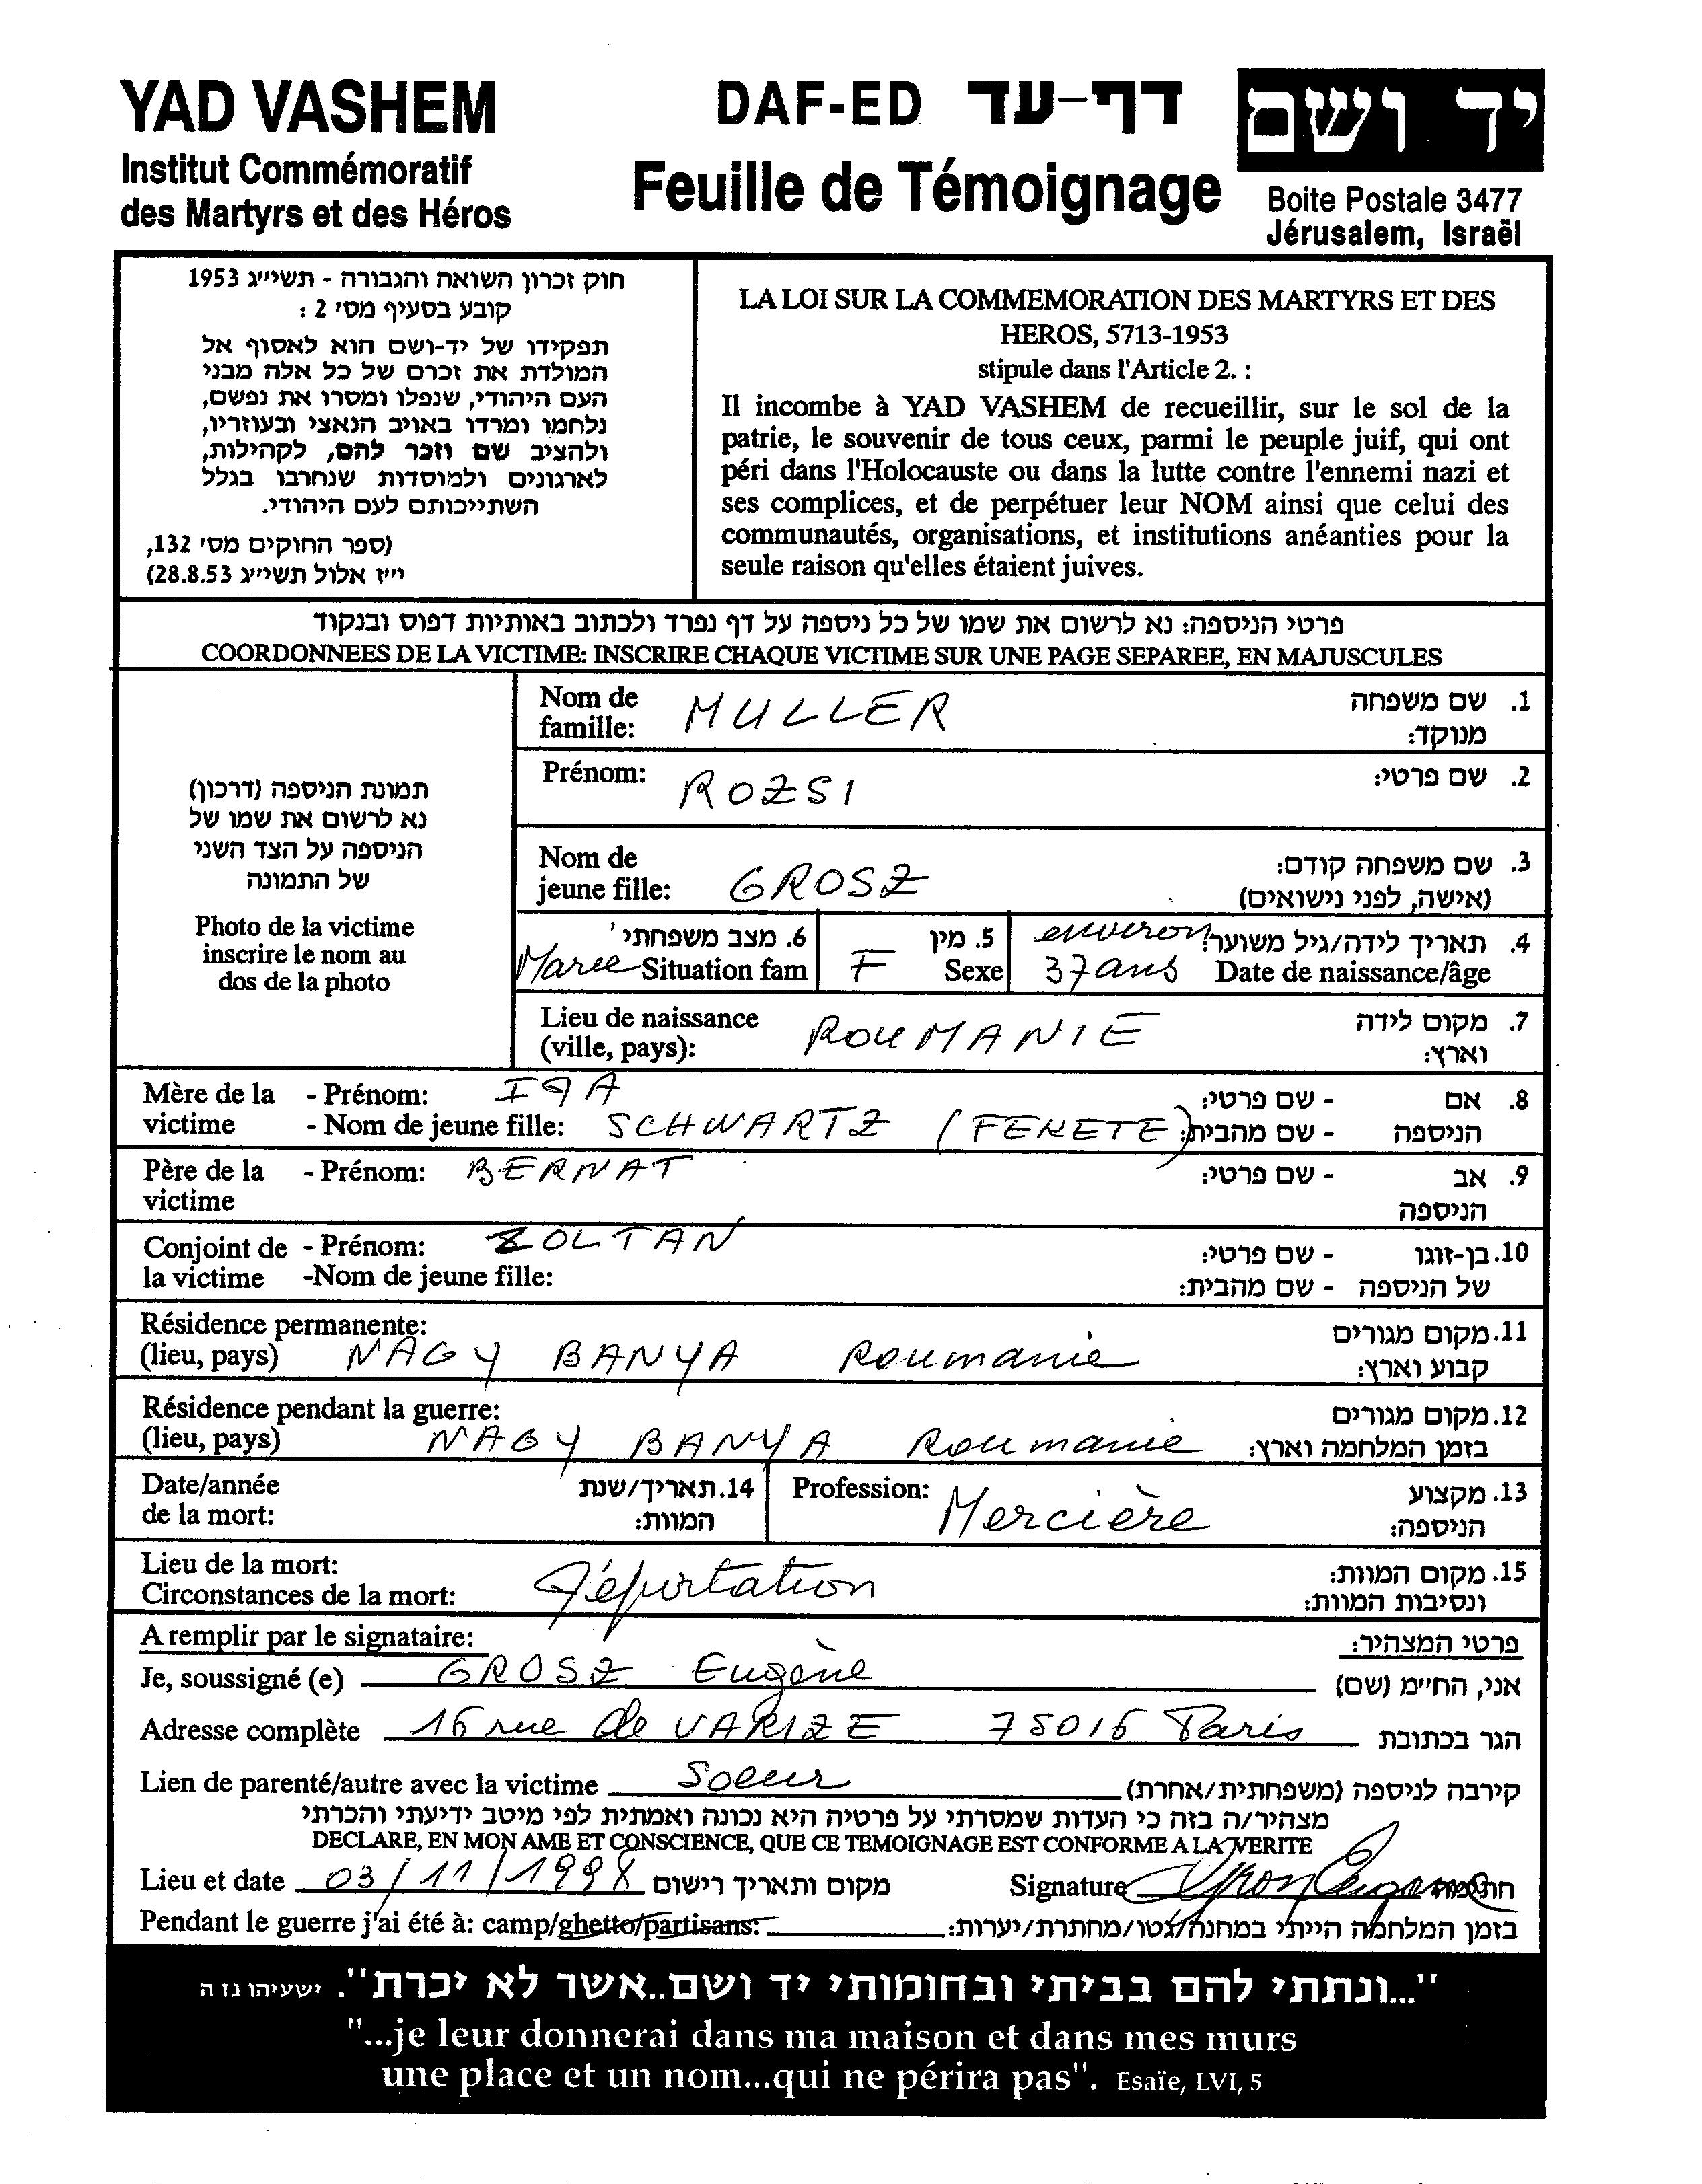 YAD VASHEM
Institut Commémoratif
des Martyrs et des Héros
DAF-ED דף-עד
Feuille de Témoignage
יד ושם
Boite Postale 3477
Jérusalem, Israël
חוק זכרון השואה והגבורה - תשי״ג 1953
קובע בסעיף מס׳ 2 :
תפקידו של יד-ושם הוא לאסוף אל
המולדת את זכרם של כל אלה מבני
העם היהודי, שנפלו ומסרו את נפשם,
נלחמו ומרדו באויב הנאצי ובעוזריו,
ולהציב שם וזכר להם, לקהילות,
לארגונים ולמוסדות שנחרבו בגלל
השתייכותם לעם היהודי.
(ספר החוקים מס׳ 132,
י״ז אלול תשי״ג 28.8.53)
LA LOI SUR LA COMMEMORATION DES MARTYRS ET DES
HEROS, 5713-1953
stipule dans l'Article 2. :
Il incombe à YAD VASHEM de recueillir, sur le sol de la
patrie, le souvenir de tous ceux, parmi le peuple juif, qui ont
péri dans l'Holocauste ou dans la lutte contre l'ennemi nazi et
ses complices, et de perpétuer leur NOM ainsi que celui des
communautés, organisations, et institutions anéanties pour la
seule raison qu'elles étaient juives.
פרטי הניספה: נא לרשום את שמו של כל ניספה על דף נפרד ולכתוב באותיות דפוס ובנקוד
COORDONNEES DE LA VICTIME: INSCRIRE CHAQUE VICTIME SUR UNE PAGE SEPAREE, EN MAJUSCULES
תמונת הניספה (דרכון)
נא לרשום את שמו של
הניספה על הצד השני
של התמונה
Photo de la victime
inscrire le nom au
dos de la photo
Nom de famille: MULLER 1. שם משפחה מנוקד:
Prénom: ROZSI 2. שם פרטי:
Nom de jeune fille: GROSZ 3. שם משפחה קודם: (אישה, לפני נישואים)
Mariee 6. מצב משפחתי Situation fam
F 5. מין Sexe
environ 37 ans 4. תאריך לידה/גיל משוער: Date de naissance/âge
Lieu de naissance (ville, pays): ROUMANIE 7. מקום לידה וארץ:
Mère de la victime - Prénom: IDA 8. אם הניספה - שם פרטי:
- Nom de jeune fille: SCHWARTZ (FEKETE) - שם מהבית:
Père de la victime - Prénom: BERNAT 9. אב הניספה - שם פרטי:
Conjoint de la victime - Prénom: ZOLTAN 10. בן-זוגו של הניספה - שם פרטי:
-Nom de jeune fille: - שם מהבית:
Résidence permanente: (lieu, pays) NAGY BANYA Roumanie 11. מקום מגורים קבוע וארץ:
Résidence pendant la guerre: (lieu, pays) NAGY BANYA Roumanie 12. מקום מגורים בזמן המלחמה וארץ:
Date/année de la mort: 14. תאריך/שנת המוות:
Profession: Mercière 13. מקצוע הניספה:
Lieu de la mort:
Circonstances de la mort: Déportation 15. מקום המוות: ונסיבות המוות:
A remplir par le signataire: פרטי המצהיר:
Je, soussigné (e) GROSZ Eugène אני, החי״מ (שם)
Adresse complète 16 rue de VARIZE 75016 Paris הגר בכתובת
Lien de parenté/autre avec la victime Soeur קירבה לניספה (משפחתית/אחרת)
מצהיר/ה בזה כי העדות שמסרתי על פרטיה היא נכונה ואמתית לפי מיטב ידיעתי והכרתי
DECLARE, EN MON AME ET CONSCIENCE, QUE CE TEMOIGNAGE EST CONFORME A LA VERITE
Lieu et date 03/11/1998 מקום ותאריך רישום Signature חתימה
Pendant le guerre j'ai été à: camp/ghetto/partisans: בזמן המלחמה הייתי במחנה/גטו/מחתרת/יערות:
"...ונתתי להם בביתי ובחומותי יד ושם..אשר לא יכרת". ישעיהו נז ה
"...je leur donnerai dans ma maison et dans mes murs
une place et un nom...qui ne périra pas". Esaïe, LVI, 5